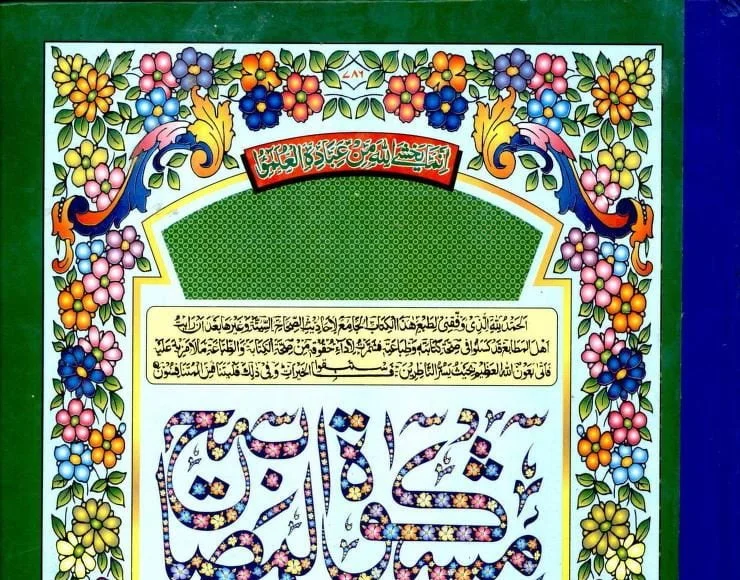 ٧٨٦
إنما يخشى الله من عباده العلمؤا
الحمد لله الذي وفقني لطبع هذا الكتاب الجامع لاحاديث الصحاح الستة وغيرها بعد ان رايت
اهل المطابع قد كسلوا في صحة كتابته وطباعته فشمرت لاداء حقوقه من صحة الكتابة والطباعة مالا مزيد عليه
فاتى بعون الله العظيم بحيث يسر الناظرين فاستبقوا الخيرات وفي ذلك فليتنافس المتنافسون
مشكوة المصابيح